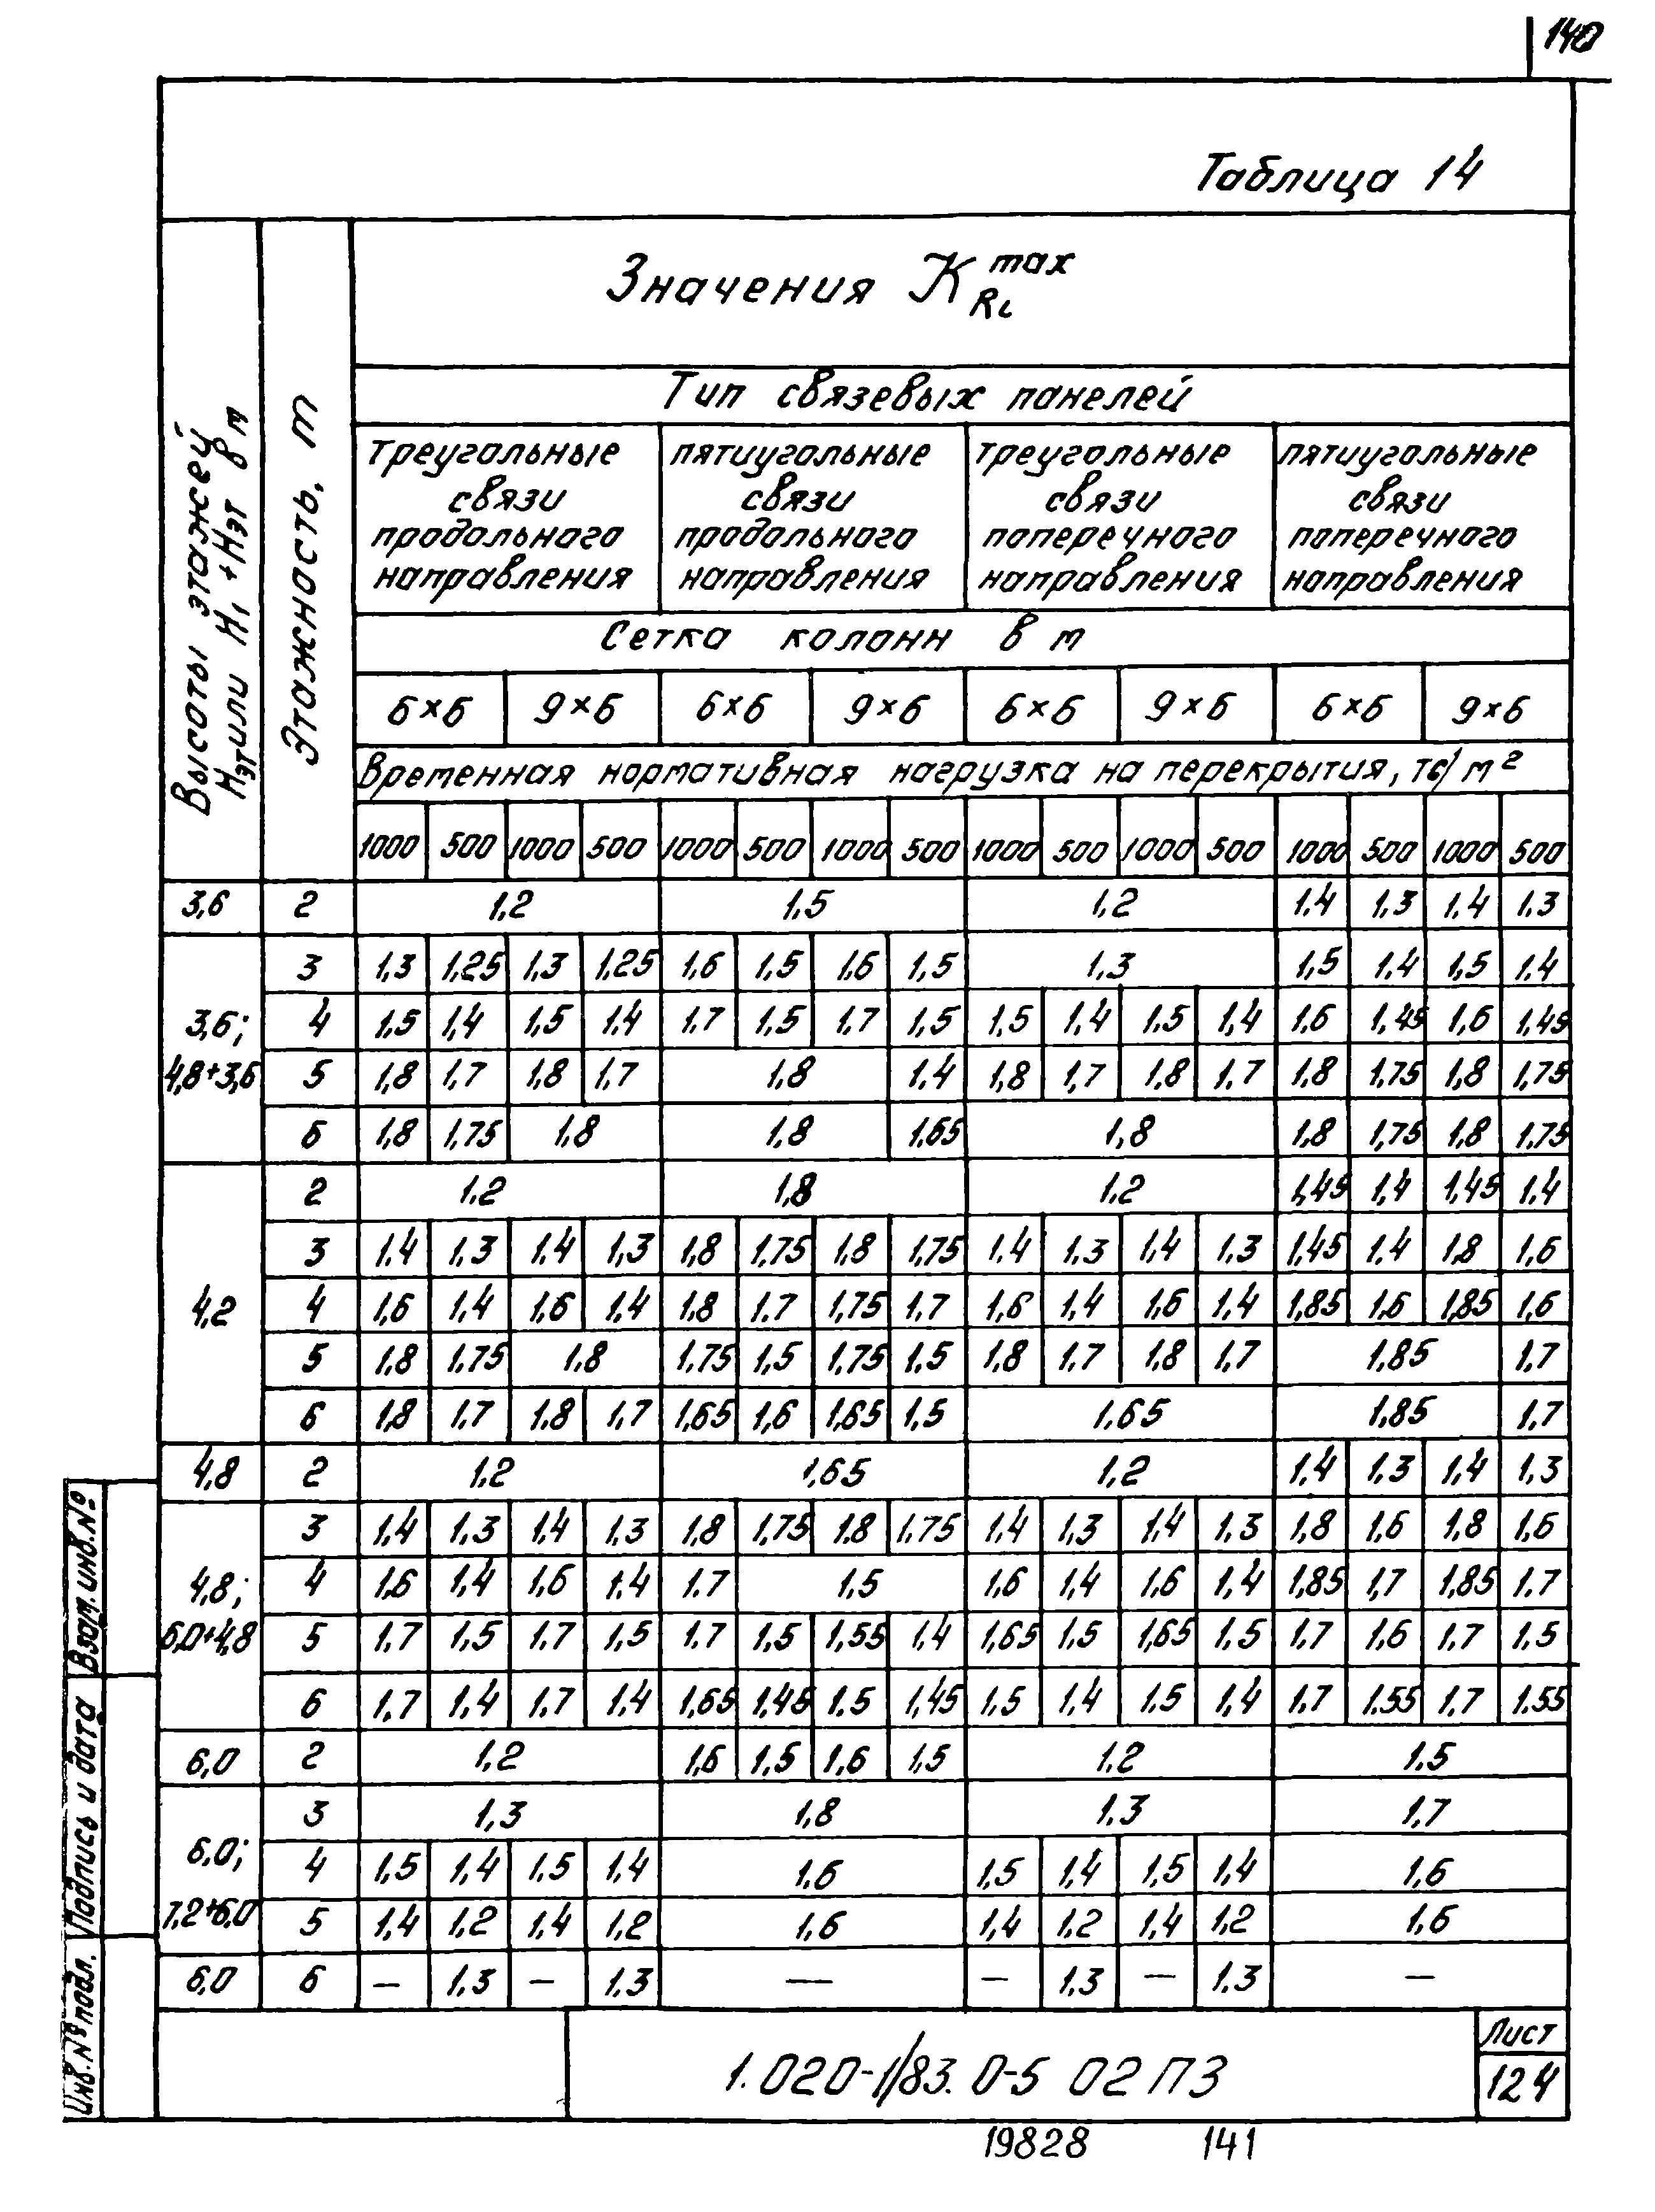 140
Таблица 14
Высоты этажей Нэт или Н1+Нэт в м
Этажность, m
Значения K Ri max
Тип связевых панелей
треугольные связи продольного направления
пятиугольные связи продольного направления
треугольные связи поперечного направления
пятиугольные связи поперечного направления
Сетка колонн в м
6×6 9×6 6×6 9×6 6×6 9×6 6×6 9×6
Временная нормативная нагрузка на перекрытия, тс/м²
1000 500 1000 500 1000 500 1000 500 1000 500 1000 500 1000 500 1000 500
3,6 2 1.2 1.5 1.2 1.4 1.3 1.4 1.3
3 1,3 1,25 1,3 1,25 1,6 1,5 1,6 1,5 1.3 1,5 1.4 1,5 1.4
3,6; 4 1,5 1,4 1,5 1.4 1.7 1.5 1.7 1,5 1,5 1,4 1.5 1,4 1.6 1,45 1,6 1,45
4,8+3,6 5 1,8 1,7 1,8 1,7 1,8 1,4 1,8 1,7 1,8 1,7 1,8 1,75 1,8 1,75
6 1,8 1,75 1,8 1,8 1,65 1,8 1,8 1,75 1,8 1,75
2 1.2 1,8 1.2 1,45 1,4 1,45 1.4
3 1.4 1.3 1.4 1,3 1,8 1.75 1,8 1,75 1.4 1.3 1.4 1.3 1,45 1.4 1,8 1,6
4,2 4 1,6 1.4 1.6 1.4 1,8 1.7 1,75 1.7 1,6 1.4 1,6 1,4 1,85 1,6 1,85 1,6
5 1,8 1,75 1.8 1,75 1,5 1,75 1,5 1,8 1,7 1,8 1,7 1.85 1,7
6 1,8 1,7 1,8 1,7 1,65 1,6 1,65 1,5 1,65 1.85 1,7
4,8 2 1.2 1,65 1.2 1.4 1.3 1,4 1.3
3 1.4 1.3 1.4 1.3 1.8 1.75 1.8 1.75 1.4 1.3 1.4 1.3 1,8 1,6 1,8 1,6
4,8; 4 1,6 1.4 1.6 1.4 1.7 1.5 1,6 1.4 1,6 1,4 1,85 1,7 1,85 1.7
6,0+4,8 5 1.7 1.5 1.7 1,5 1.7 1,5 1,55 1.4 1,65 1.5 1,65 1.5 1.7 1.6 1.7 1.5
6 1.7 1.4 1.7 1.4 1,65 1.45 1.5 1.45 1.5 1.4 1.5 1.4 1.7 1.55 1.7 1.55
6,0 2 1.2 1,6 1.5 1.6 1.5 1.2 1.5
3 1.3 1.8 1.3 1.7
6,0; 4 1.5 1.4 1.5 1.4 1.6 1.5 1.4 1.5 1.4 1.6
7,2+6,0 5 1.4 1.2 1.4 1.2 1.6 1.4 1.2 1.4 1.2 1.6
6,0 6 — 1.3 — 1.3 — — 1.3 — 1.3 —
Инв.№ подл. Подпись и дата Взам.инв.№
1.020-1/83. 0-5 02 ПЗ
Лист
124
19828 141